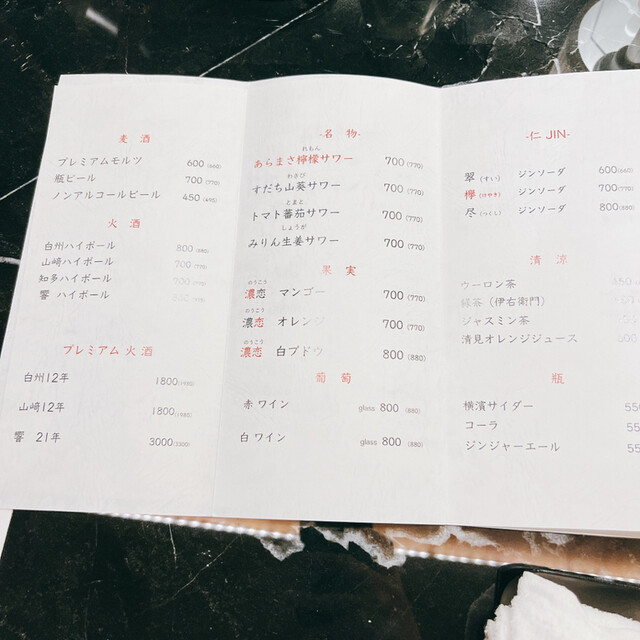 麦 酒
プレミアムモルツ 600(660)
瓶ビール 700(770)
ノンアルコールビール 450(495)
火 酒
白州ハイボール 800(880)
山﨑ハイボール 700(770)
知多ハイボール 700
響 ハイボール
プレミアム 火 酒
白州12年 1800(1980)
山﨑12年 1800(1980)
響 21年 3000(3300)
-名 物-
れもん
あらまさ檸檬サワー 700(770)
わさび
すだち山葵サワー 700(770)
とまと
トマト蕃茄サワー 700(770)
しょうが
みりん生姜サワー 700(770)
果 実
のうこう
濃恋 マンゴー 700(770)
のうこう
濃恋 オレンジ 700(770)
のうこう
濃恋 白ブドウ 800(880)
葡 萄
赤ワイン glass 800(880)
白ワイン glass 800(880)
-仁 JIN-
翠(すい) ジンソーダ 600(660)
欅(けやき) ジンソーダ 700(770)
尽(つくし) ジンソーダ 800(880)
清 涼
ウーロン茶 450
緑茶(伊右衛門)
ジャスミン茶
清見オレンジジュース 500
瓶
横濱サイダー 55
コーラ 55
ジンジャーエール 55